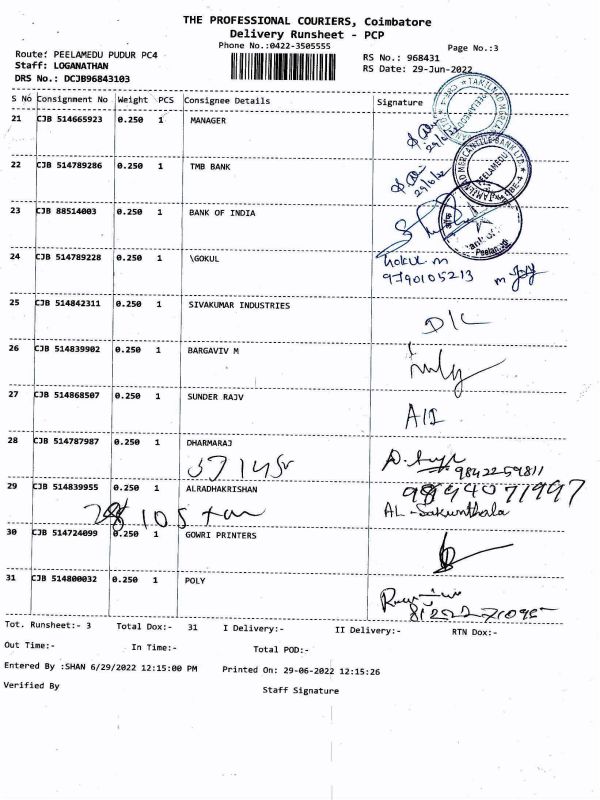 THE PROFESSIONAL COURIERS, Coimbatore
Delivery Runsheet - PCP
Phone No.:0422-3505555
Page No.:3
Route: PEELAMEDU PUDUR PC4
RS No.: 968431
Staff: LOGANATHAN
RS Date: 29-Jun-2022
DRS No.: DCJB96843103
S No Consignment No Weight PCS Consignee Details Signature
21 CJB 514665923 0.250 1 MANAGER
22 CJB 514789286 0.250 1 TMB BANK
29/6/22
TAMILNAD MERCANTILE BANK LTD.
PEELAMEDU
CBE-4
23 CJB 88514003 0.250 1 BANK OF INDIA
24 CJB 514789228 0.250 1 \GOKUL
Gokul m
9790105213
25 CJB 514842311 0.250 1 SIVAKUMAR INDUSTRIES
26 CJB 514839902 0.250 1 BARGAVIV M
27 CJB 514868507 0.250 1 SUNDER RAJV
28 CJB 514787987 0.250 1 DHARMARAJ
9842259811
29 CJB 514839955 0.250 1 ALRADHAKRISHAN
9894071997
AL-Sakunthala
30 CJB 514724099 0.250 1 GOWRI PRINTERS
31 CJB 514800032 0.250 1 POLY
Tot. Runsheet:- 3 Total Dox:- 31 I Delivery:- II Delivery:- RTN Dox:-
Out Time:- In Time:- Total POD:-
Entered By :SHAN 6/29/2022 12:15:00 PM Printed On: 29-06-2022 12:15:26
Verified By Staff Signature